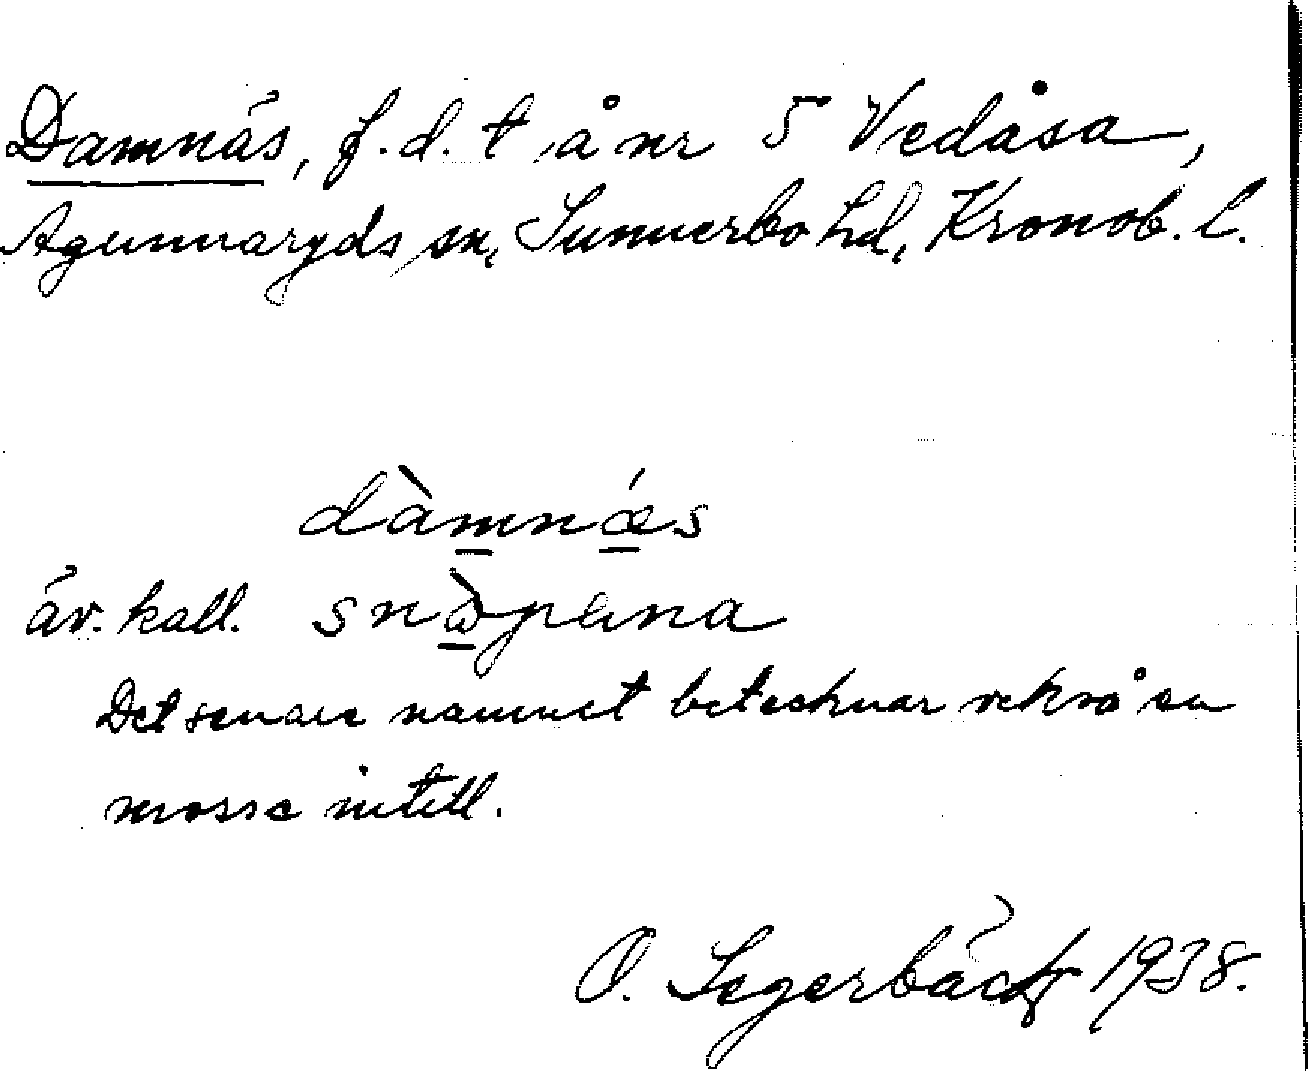 Damnäs, f.d. t å nr 5 Vedåsa,
Agunnaryds sn, Sunnerbo hd, Kronob. l.
dàmnǽs
äv. kall. snàpana
Det senare namnet betecknar också en
mosse intill.
O. Segerbäck 1938.